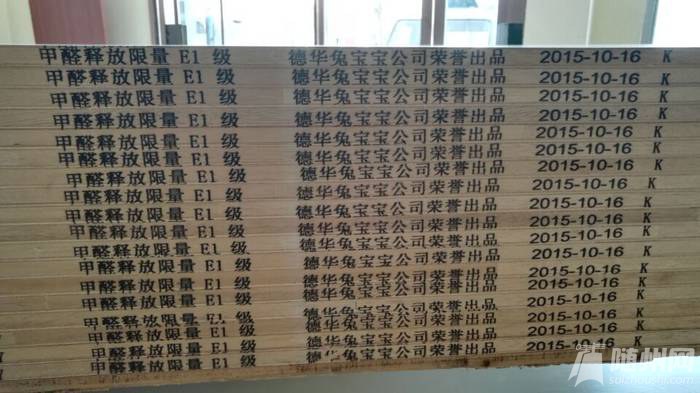 甲醛释放限量 E1 级 德华兔宝宝公司荣誉出品 2015-10-16 K
甲醛释放限量 E1 级 德华兔宝宝公司荣誉出品 2015-10-16 K
甲醛释放限量 E1 级 德华兔宝宝公司荣誉出品 2015-10-16 K
甲醛释放限量 E1 级 德华兔宝宝公司荣誉出品 2015-10-16 K
甲醛释放限量 E1 级 德华兔宝宝公司荣誉出品 2015-10-16 K
甲醛释放限量 E1 级 德华兔宝宝公司荣誉出品 2015-10-16 K
甲醛释放限量 E1 级 德华兔宝宝公司荣誉出品 2015-10-16 K
甲醛释放限量 E1 级 德华兔宝宝公司荣誉出品 2015-10-16 K
甲醛释放限量 E1 级 德华兔宝宝公司荣誉出品 2015-10-16 K
甲醛释放限量 E1 级 德华兔宝宝公司荣誉出品 2015-10-16 K
甲醛释放限量 E1 级 德华兔宝宝公司荣誉出品 2015-10-16 K
甲醛释放限量 E1 级 德华兔宝宝公司荣誉出品 2015-10-16 K
甲醛释放限量 E1 级 德华兔宝宝公司荣誉出品 2015-10-16 K
甲醛释放限量 E1 级 德华兔宝宝公司荣誉出品 2015-10-16 K
甲醛释放限量 E1 级 德华兔宝宝公司荣誉出品 2015-10-16 K
甲醛释放限量 E1 级 德华兔宝宝公司荣誉出品 2015-10-16 K
甲醛释放限量 E1 级 德华兔宝宝公司荣誉出品 2015-10-16 K
甲醛释放限量 E1 级 德华兔宝宝公司荣誉出品 2015-10-16 K
随州网